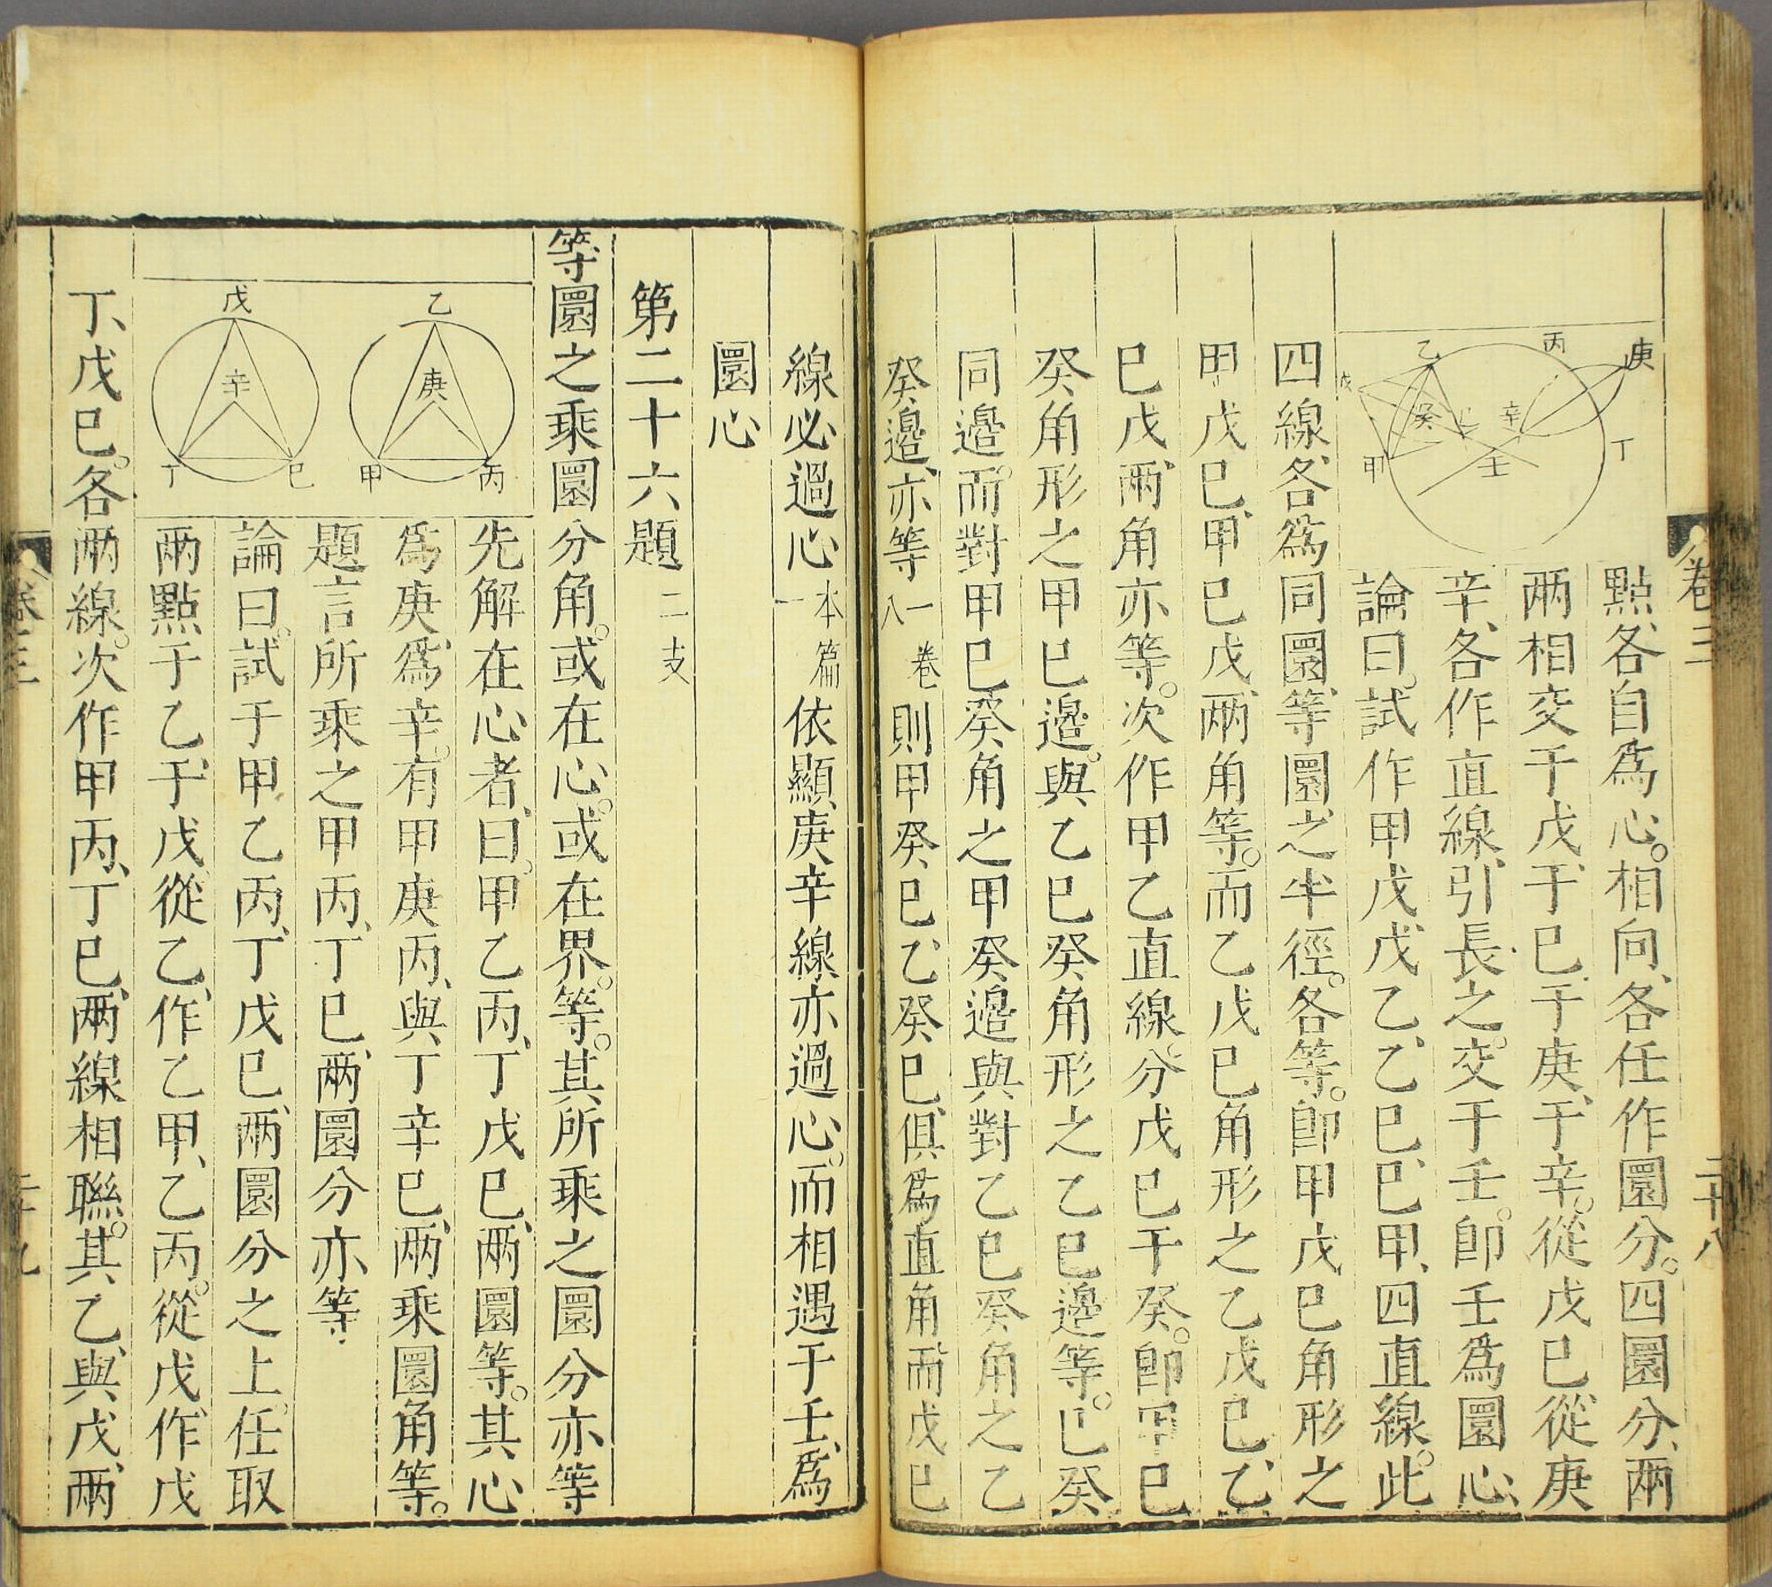 卷三
二十八
庚
丙
乙
戊
癸
辛
丁
甲
壬
點、各自爲心。相向、各任作圜分。四圜分、兩
兩相交于戊、于巳、于庚、于辛。從戊巳、從庚
辛、各作直線、引長之。交于壬。卽壬爲圜心、
論曰。試作甲戊、戊乙、乙巳、巳甲、四直線。此
四線、各爲同圜、等圜、之半徑。各等。卽甲戊巳角形之
甲戊巳、甲巳戊、兩角等。而乙戊巳角形之乙戊巳、乙
巳戊、兩角亦等。次作甲乙直線。分戊巳于癸。卽甲巳
癸角形之甲巳邊。與乙巳癸角形之乙巳邊等。巳癸
同邊。而對甲巳癸角之甲癸邊與對乙巳癸角之乙
癸邊、亦等一卷八則甲癸巳、乙癸巳、俱爲直角而戊巳
線必過心本篇一依顯、庚辛線亦過心。而相遇于壬、爲
圜心
第二十六題二支
等圜之乘圜分角。或在心。或在界。等。其所乘之圜分亦等
乙
庚
甲
丙
戊
辛
丁
巳
先解在心者、曰。甲乙丙、丁戊巳、兩圜等。其心
爲庚、爲辛。有甲庚丙、與丁辛巳、兩乘圜角等。
題言所乘之甲丙、丁巳、兩圜分亦等.
論曰。試于甲乙丙、丁戊巳、兩圜分之上。任取
兩點于乙、于戊、從乙、作乙甲、乙丙。從戊、作戊
丁、戊巳。各兩線。次作甲丙、丁巳、兩線相聯。其乙、與戊、兩
卷三
二十九